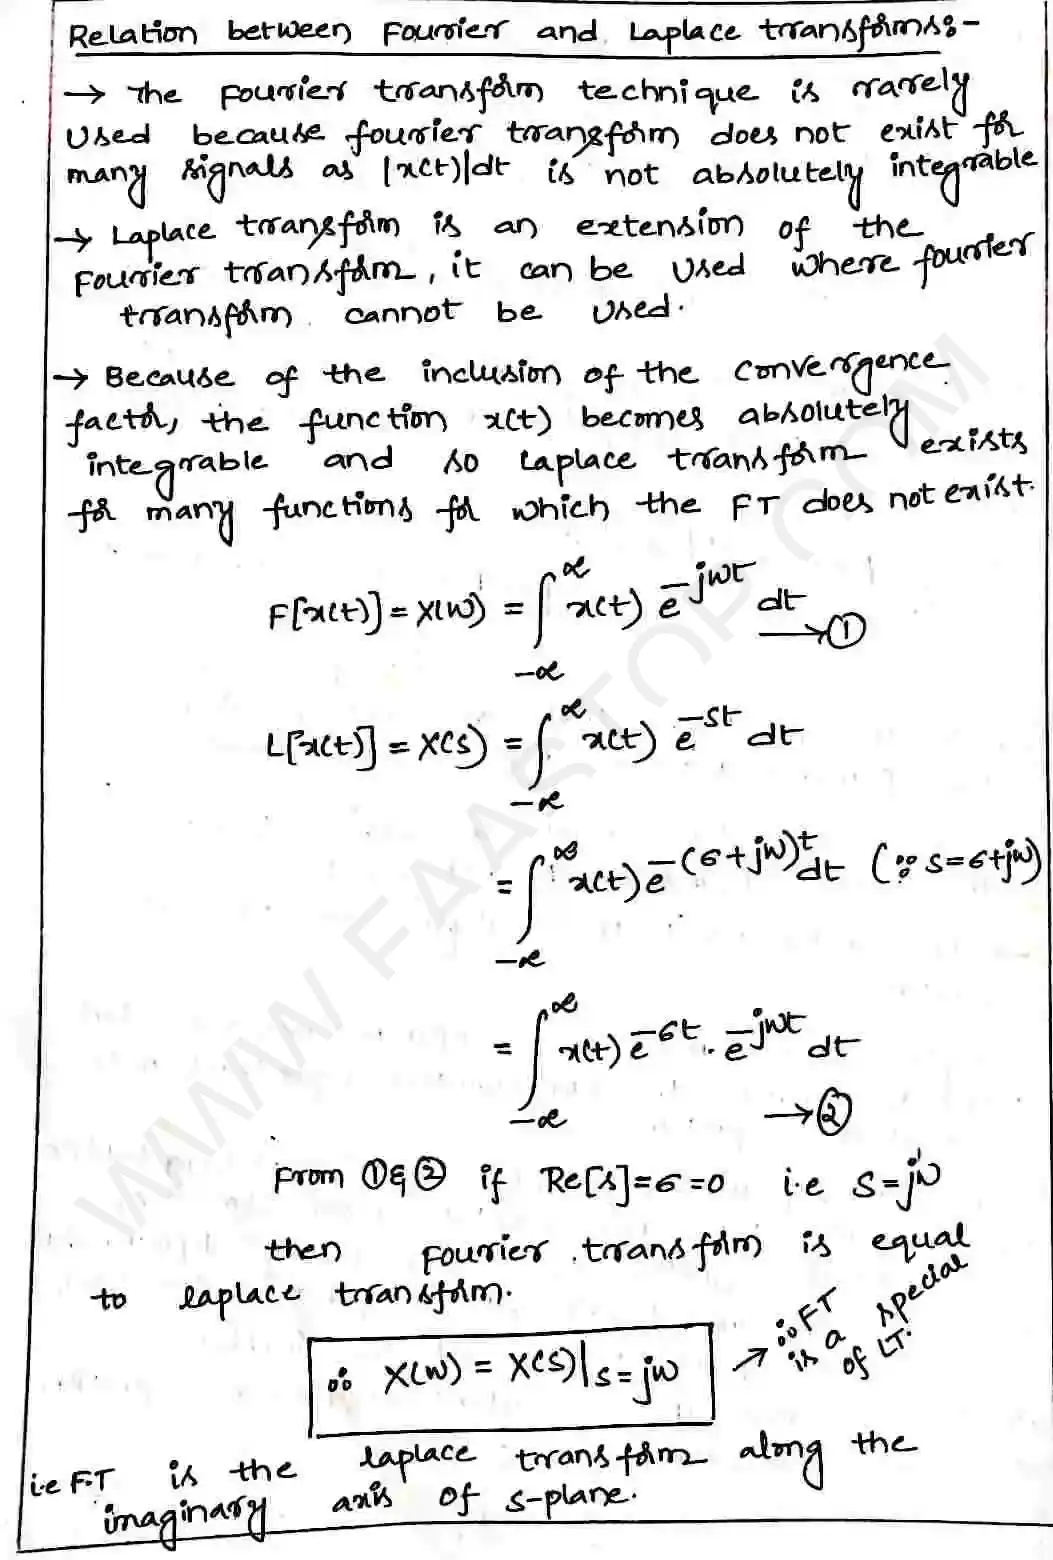 Relation between Fourier and Laplace transforms:-
→ The Fourier transform technique is rarely
Used because fourier transform does not exist for
many signals as |x(t)|dt is not absolutely integrable
→ Laplace transform is an extension of the
Fourier transform, it can be used where fourier
transform cannot be used.
→ Because of the inclusion of the convergence
factor, the function x(t) becomes absolutely
integrable and so Laplace transform exists
for many functions for which the FT does not exist.
F[x(t)] = X(w) = ∫_{-∞}^{∞} x(t) e^{-jwt} dt → ①
L[x(t)] = X(s) = ∫_{-∞}^{∞} x(t) e^{-st} dt
= ∫_{-∞}^{∞} x(t) e^{-(σ+jw)t} dt (∵ s=σ+jw)
= ∫_{-∞}^{∞} x(t) e^{-σt} . e^{-jwt} dt
→ ②
From ① & ② if Re[s]=σ=0 i.e s=jw
then fourier transform is equal
to laplace transform.
∴ X(w) = X(s)|s=jw
→ ∴ FT
is a special
of LT.
i.e F.T is the laplace transform along the
imaginary axis of s-plane.
WWW.FAASTOP.COM